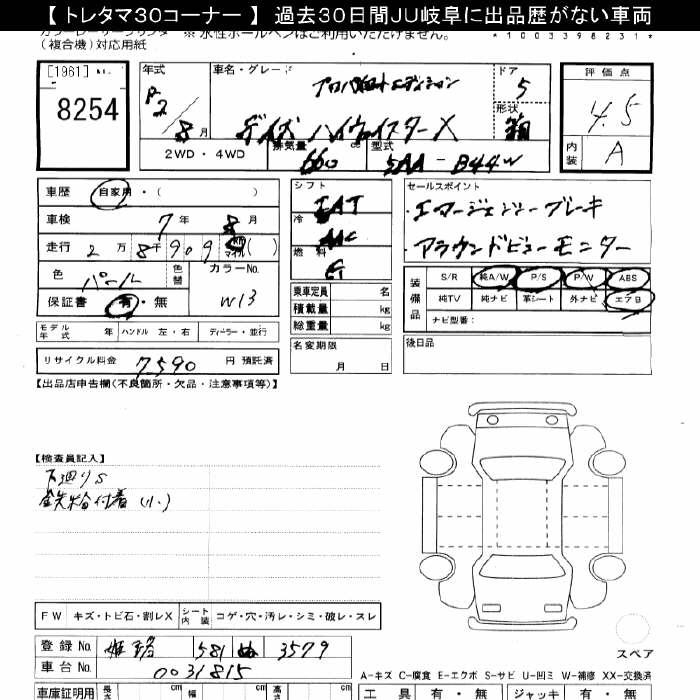 【 トレタマ30コーナー 】 過去30日間JU岐阜に出品歴がない車両
(複合機)対応用紙
*1003398231*
[1961] No.
8254
年式
R2/8月
車名・グレード
プロパイロットエディション
デイズ ハイウェイスターX
ドア
5
形状
箱
2WD・4WD
排気量
660
cc
型式
5AA-B44W
評価点
4.5
内装
A
車歴 自家用・( )
車検 7年 8月
走行 2万8千909 km マイル ( )
色 パール 色替
カラーNo.
W13
保証書 有・無
モデル年式 年 ハンドル 左・右 ディーラー・並行
リサイクル料金 7590 円 預託済
シフト
IAT
冷
AAC
燃料
G
乗車定員 名
積載量 kg
総重量 kg
名変期限
月 日
セールスポイント
・エマージェンシーブレーキ
アラウンドビューモニター
装備品
S/R 純A/W P/S P/W ABS
純TV 純ナビ 革シート 外ナビ エアB
ナビ型番:
後日品
【出品店申告欄(不良箇所・欠品・注意事項等)】
【検査員記入】
下廻りS
鉄粉付着(小)
FW キズ・トビ石・割レX シート内装 コゲ・穴・汚レ・シミ・破レ・スレ
登録No. 姫路 581 ぬ 3579
車台No. 0031815
スペア
A-キズ C-腐食 E-エクボ S-サビ U-凹ミ W-補修 XX-交換済
車庫証明用 長さ cm 幅 cm 高さ cm
工具 有・無 ジャッキ 有・無